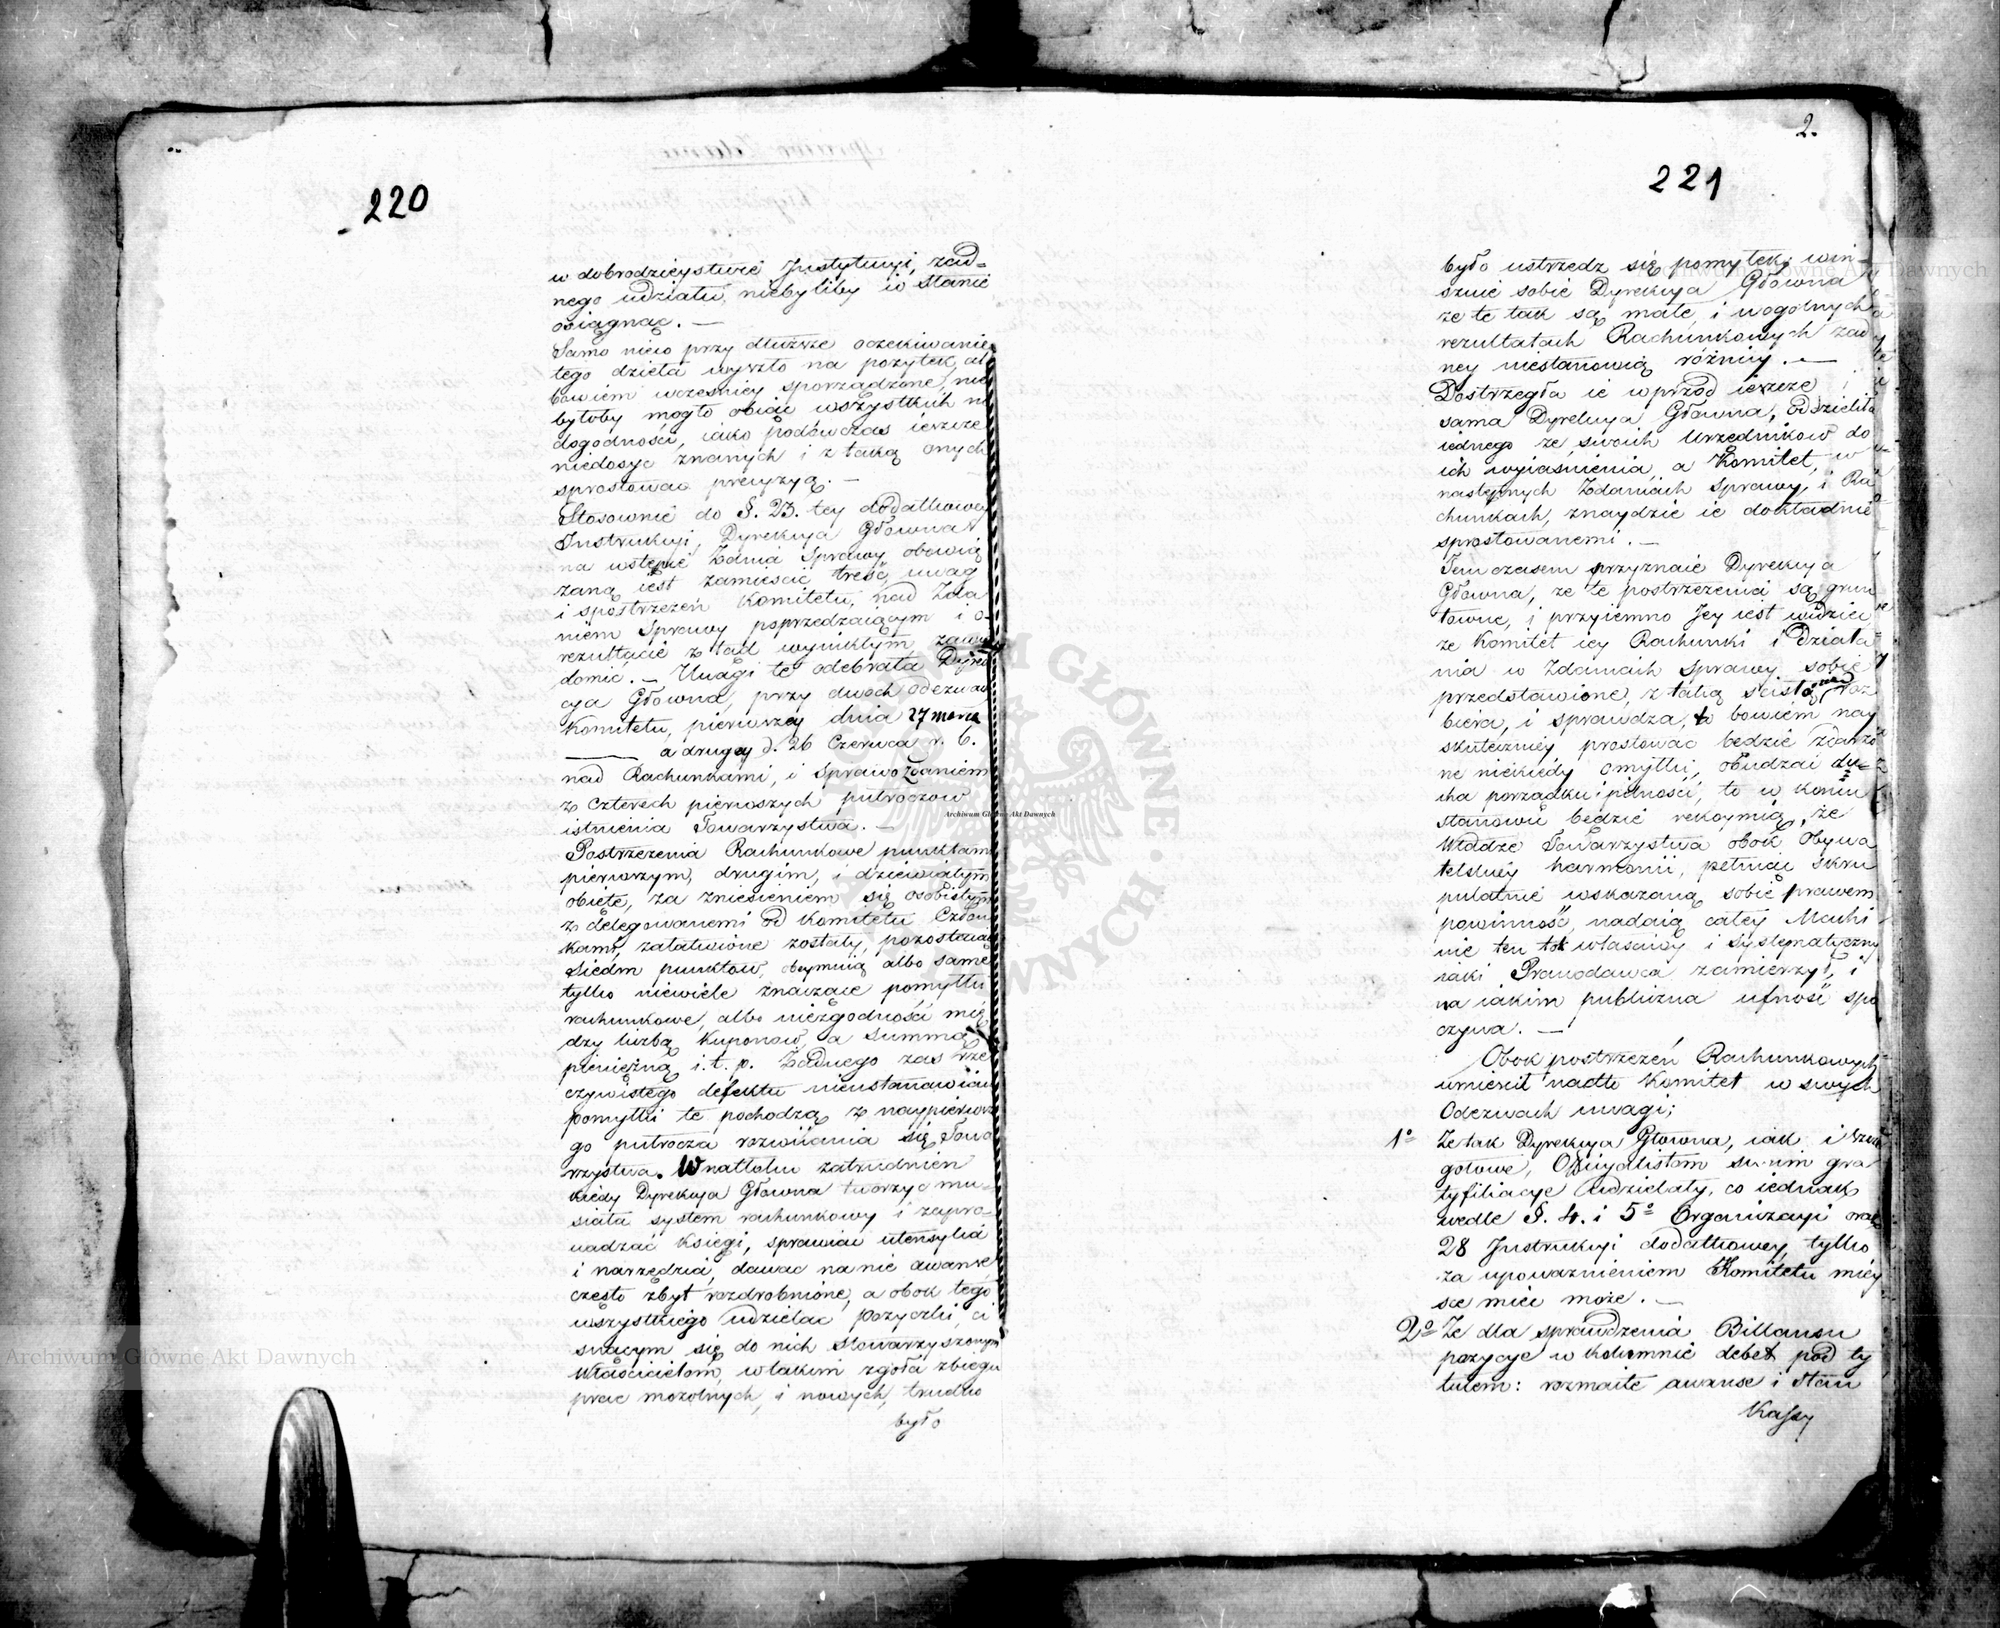 220
w dobrodzieystwie Jnstytucyi, żad=
nego udziału, niebyliby w stanie
osiągnąć. —
Samo nieco przy dłuższe oczekiwanie
tego dzieła wyszło na pożytek, al
bowiem wcześniey sporządzone, nie
byłoby mogło obiąć wszystkich n
dogodności, iako podówczas ieszcze
niedosyć znanych i z taką onych
sprostować precyzyą. —
Stosownie do §. 23. tey dodatkowey
Jnstrukcyi, Dyrekcya Główna
na wstępie Zdania Sprawy obowią
zaną iest zamieścić treść uwag
i spostrzeżeń Komitetu, nad Zda
niem Sprawy poprzedzaiącym i o
rezultacie z tąd wynikłym, zawia
domić. — Uwagi te odebrała Dyrek
cya Główna, przy dwóch odezwach
Komitetu, pierwszey dnia 27 marca
a drugiey d. 26 Czerwca r. b.
nad Rachunkami, i Sprawozdaniem
z Czterech pierwszych półroczów
istnienia Towarzystwa. —
Postrzeżenia Rachunkowe punktam
pierwszym, drugim, i dziewiątym
obięte, za zniesieniem się osobistym
z delegowanemi od Komitetu Człon
kami, załatwione zostały, pozostaią
Siedm punktów, obeymuią albo same
tylko niewiele znaczące pomyłki
rachunkowe, albo niezgodności mię
dzy liczbą Kuponów, a Summą
pieniężną i. t. p. Żadnego zaś rze
czywistego defektu nieustanawiaią
pomyłki te pochodzą z naypierwsze
go półrocza rozwiiania się Towa
rzystwa. W natłoku zatrudnień
kiedy Dyrekcya Główna tworzyć mu=
siała system rachunkowy i zapro=
wadzać księgi, sprawiać utensylia
i narzędzia, dawać na nie awanse
często zbyt rozdrobnione, a obok tego
wszystkiego udzielać pożyczki, ci
snącym się do nich Stowarzyszonym
Właścicielom, w takim zgoła zbiegu
prac mozolnych, i nowych, trudno
było
2.
221
było ustrzedz się pomyłek; win=
szuie sobie Dyrekcya Główna
że te tak są małe, i w ogólnych
rezultatach Rachunkowych żad
ney niestanowią różnicy. —
Dostrzegła ie wprzód ieszcze i
sama Dyrekcya Główna, oddzieliła
iednego ze swoich Urzędników do
ich wyiaśnienia, a Komitet, w
następnych Zdaniach Sprawy, i Ra
chunkach, znaydzie ie dokładnie
sprostowanemi. —
Tem czasem przyznaie Dyrekcya
Główna, że te postrzeżenia są grun
towne, i przyiemno Jey iest widzieć
że Komitet iey Rachunki i działa
nia w Zdaniach Sprawy sobie
przedstawione, z taką ścisłością roz
biera, i sprawdza, to bowiem nay
skuteczniey prostować będzie zdarzo
ne niekiedy omyłki, obudzać du=
cha porządku i pilności, to w końcu
stanowić będzie rękoymią, że
Władze Towarzystwa obok Obywa
telskiey harmonii, pełniąc skru
pulatnie wskazaną sobie prawem
powinność, nadaią całey Machi
nie ten tok właściwy i systematyczny
iaki Prawodawca zamierzył, i
na iakim publiczna ufność spo
czywa. —
Obok postrzeżeń Rachunkowych
umieścił nadto Komitet w swych
Odezwach uwagi;
1º Że tak Dyrekcya Główna, iak i Szcze
gółowe, Officyalistom swoim gra
tyfikacye udzielały, co iednak
wedle §. 4. i 5º Organizacyi oraz
28 Jnstrukcyi dodatkowey, tylko
za upoważnieniem Komitetu miey
sce mieć może. —
2º Że dla sprawdzenia Billansu
pozycye w kolumnie debet pod ty
tułem: rozmaite awanse i stan
Kassy